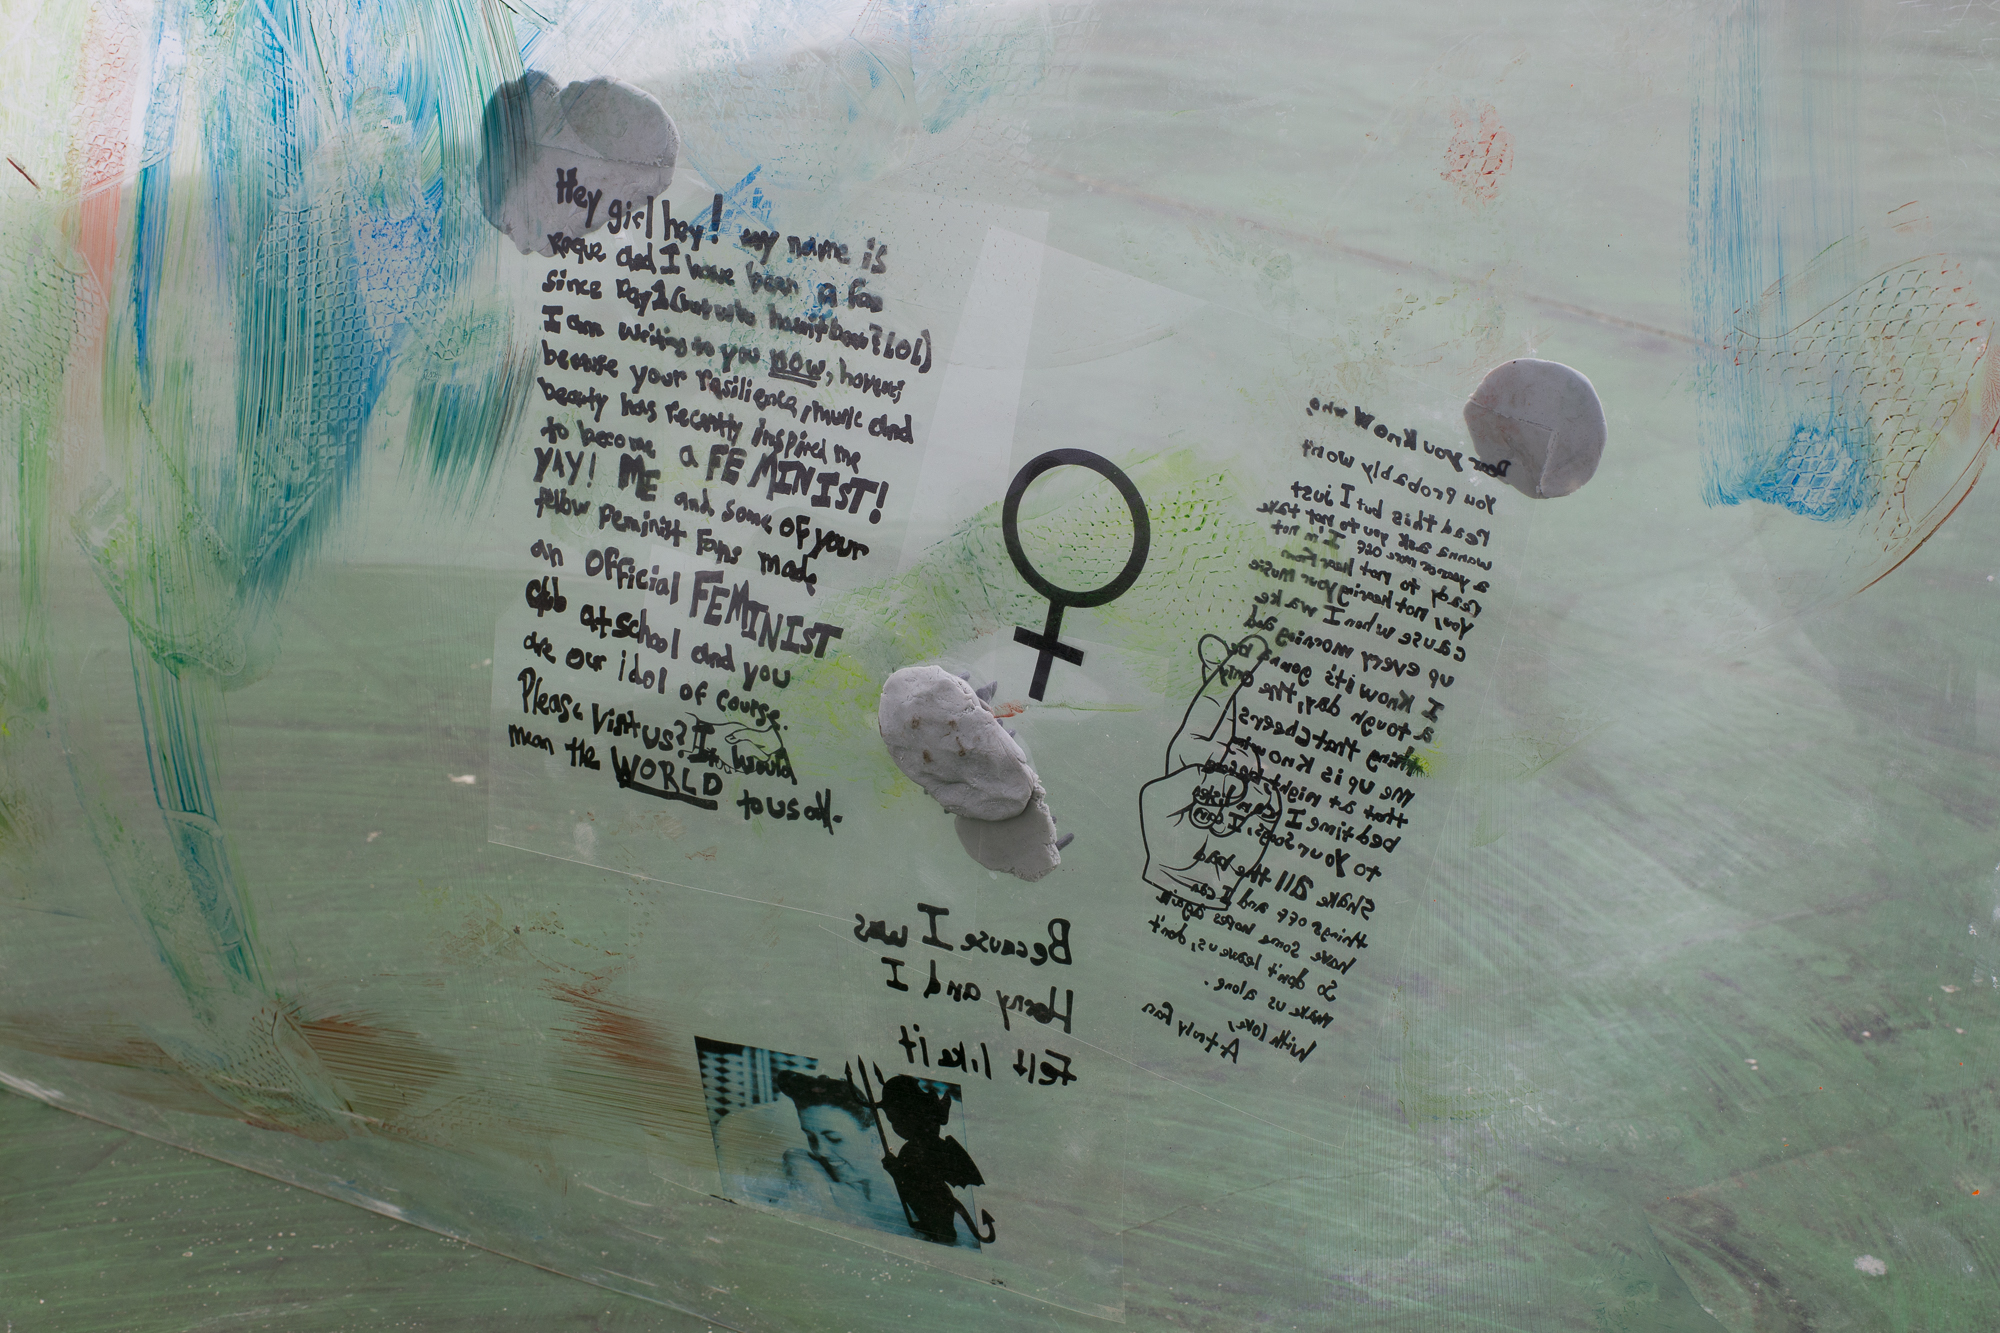 Hey girl hey! my name is
and I have been a fan
since Day 1 (but who hasn't been? LOL)
I am writing to you now,
because your resilience, music and
beauty has recently inspired me
to become a FEMINIST!
YAY! ME and some of your
fellow feminist fans made
an official FEMINIST
club at school and you
are our idol of course.
Please visit us? It would
mean the WORLD to us all.
Dear you know who,
You probably won't
read this but I just
wanna ask you to not take
a year or more off I'm not
ready to not hear from
You, not hearing your music
cause when I wake
up every morning and
I know it's gonna be
a tough day, the only
thing that cheers
me up is knowing
that at night before
bedtime I can listen
to your songs, I can
shake all the bad
things off and I can
have some hopes again
So don't leave us, don't
make us alone.
With love,
A truly fan
Because I was
Horny and I
Felt like it